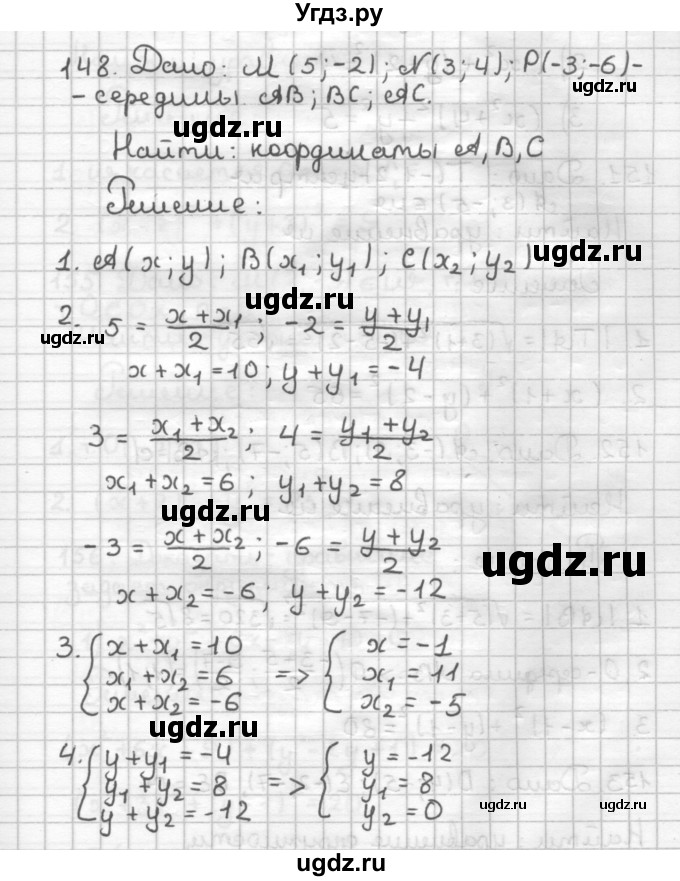 Угдз.ру
148. Дано: M(5;-2); N(3;4); P(-3;-6)-
- середины AB; BC; AC.
ugdz.ru
ugdz.ru
Найти: координаты A, B, C
Решение:
ugdz.ru
1. A(x;y); B(x₁;y₁); C(x₂;y₂)
ugdz.ru
2. 5 = (x+x₁)/2; -2 = (y+y₁)/2
ugdz.ru
x+x₁=10; y+y₁=-4
3 = (x₁+x₂)/2; 4 = (y₁+y₂)/2
ugdz.ru
x₁+x₂=6; y₁+y₂=8
-3 = (x+x₂)/2; -6 = (y+y₂)/2
ugdz.ru
x+x₂=-6; y+y₂=-12
ugdz.ru
3. { x+x₁=10 { x=-1
x₁+x₂=6 => x₁=11
x+x₂=-6 x₂=-5
ugdz.ru
4. { y+y₁=-4 { y=-12
y₁+y₂=8 => y₁=8
y+y₂=-12 y₂=0
ugdz.ru
ugdz.ru
ugdz.ru
ugdz.ru